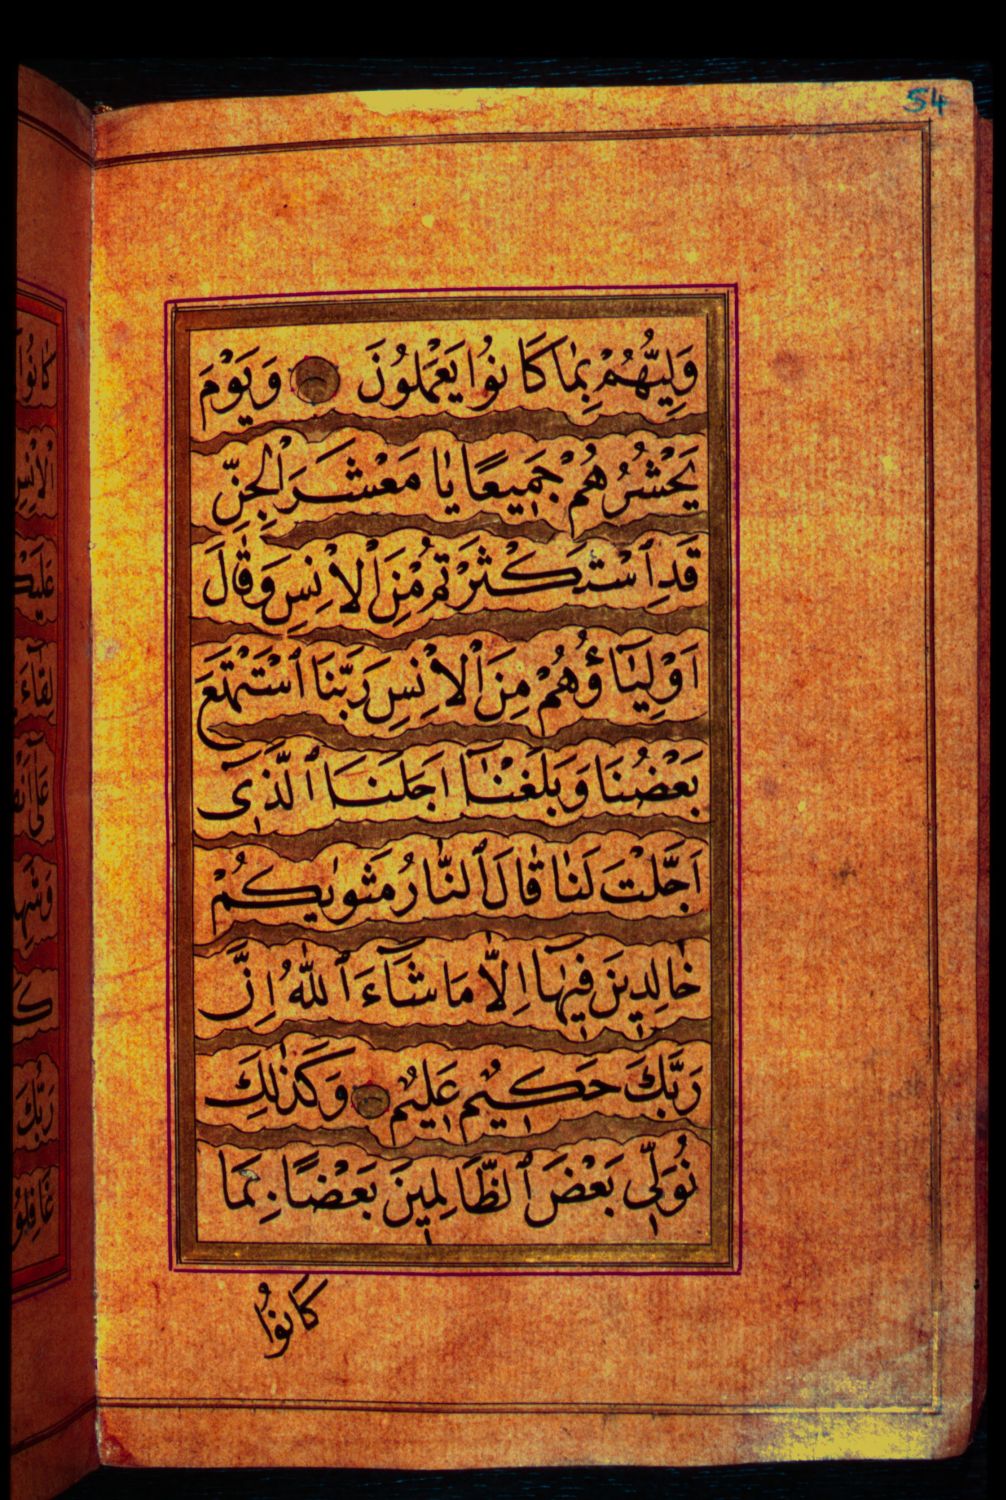 54
وَلِيُّهُمْ بِمٰا كَانُوا يَعْمَلُونَ وَيَوْمَ
يَحْشُرُهُمْ جَمِيعًا يٰا مَعْشَرَ الْجِنِّ
قَدِ ٱسْتَكْثَرْتُمْ مِنَ الْاِنْسِ وَقٰالَ
اَوْلِيٰٓاؤُهُمْ مِنَ الْاِنْسِ رَبَّنَا ٱسْتَمْتَعَ
بَعْضُنَا وَبَلَغْنٰٓا اَجَلَنَا ٱلَّذٖى
اَجَّلْتَ لَنٰا قٰالَ ٱلنّٰارُ مَثْوٰيكُمْ
خٰالِدِينَ فِيهٰٓا اِلّٰا مَا شَٓاءَ ٱللّٰهُ اِنَّ
رَبَّكَ حَكِيمٌ عَلِيمٌ وَكَذٰلِكَ
نُوَلِّى بَعْضَ ٱلظَّالِمِينَ بَعْضًا بِمَا
كَانُوا
كَانُوا
الْاِنْسِ
لِقَاءَ
رَبُّكَ